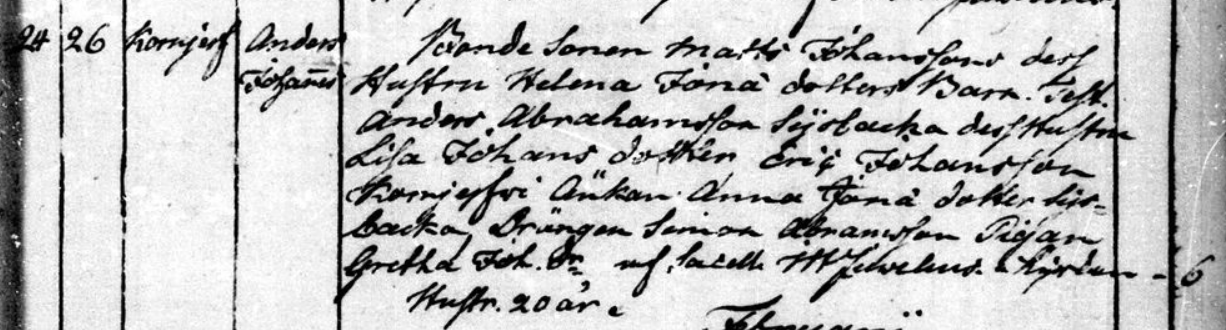 24 26 Kornjerf Anders Johannes
Bonde Sonen Matts Johanssons dess
Hustru Helena Jona dotters Barn. Test.
Anders Abrahamsson Sijsbacka dess Hustru
Lisa Johans dotter Eric Johansson
Kornjerfvi Änkan Anna Jona dotter Sijs-
backa, Drängen Simon Abramsson Pigan
Gretha Joh. Dr. af Sacell.
Hustr. 20 år. 6
Februarii